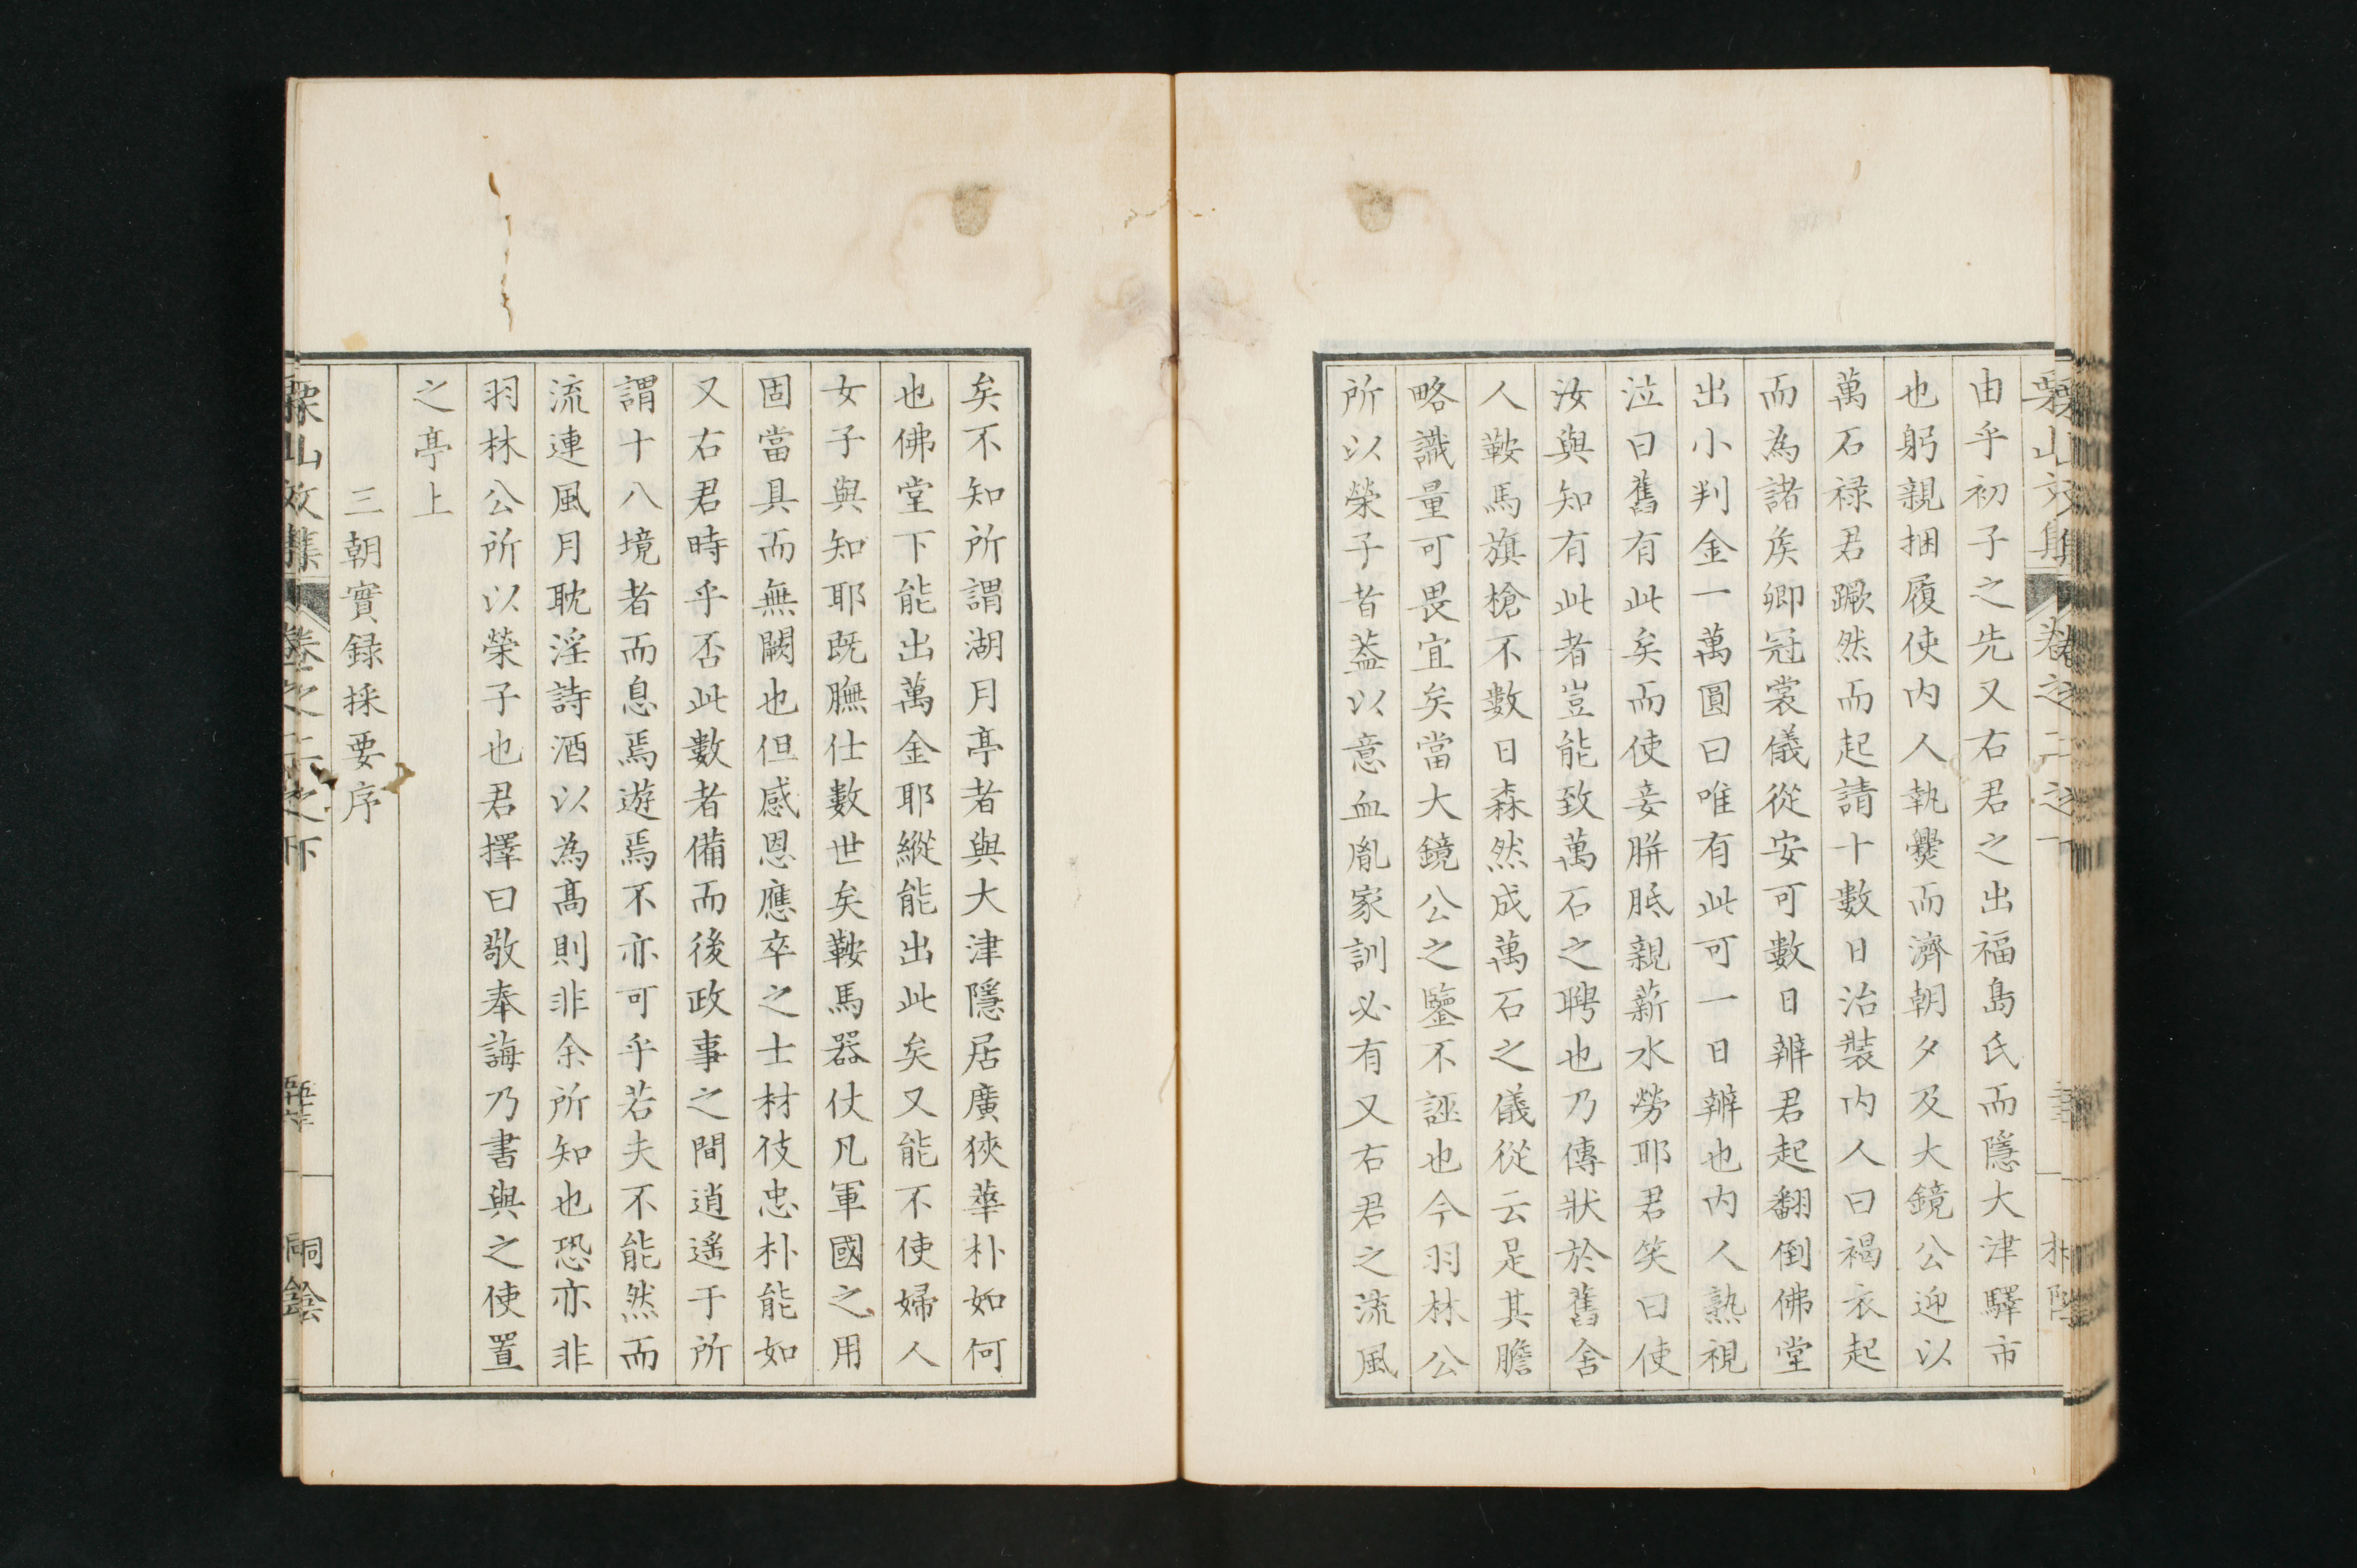 由乎初子之先又右君之出福島氏而隱大津驛市
也躬親捆履使内人執爨而濟朝夕及大鏡公迎以
萬石禄君蹶然而起請十數日治裝内人曰褐衣起
而為諸矦卿冠裳儀從安可數日辨君起翻倒佛堂
出小判金一萬圓曰唯有此可一日辨也内人熟視
泣曰舊有此矣而使妾胼胝親薪水勞耶君笑曰使
汝與知有此者豈能致萬石之聘也乃傳狀於舊舍
人鞍馬旗槍不數日森然成萬石之儀從云是其膽
略識量可畏宜矣當大鏡公之鑒不誣也今羽林公
所以榮子者葢以意血胤家訓必有又右君之流風
矣不知所謂湖月亭者與大津隱居廣狹華朴如何
也佛堂下能出萬金耶縱能出此矣又能不使婦人
女子與知耶既膴仕數世矣鞍馬器仗凡軍國之用
固當具而無闕也但感恩應卒之士材伎忠朴能如
又右君時乎否此數者備而後政事之間逍遙于所
謂十八境者而息焉遊焉不亦可乎若夫不能然而
流連風月耽淫詩酒以為髙則非余所知也恐亦非
羽林公所以榮子也君擇曰敬奉誨乃書與之使置
之亭上
三朝實録採要序
栗山文集 卷之二之下